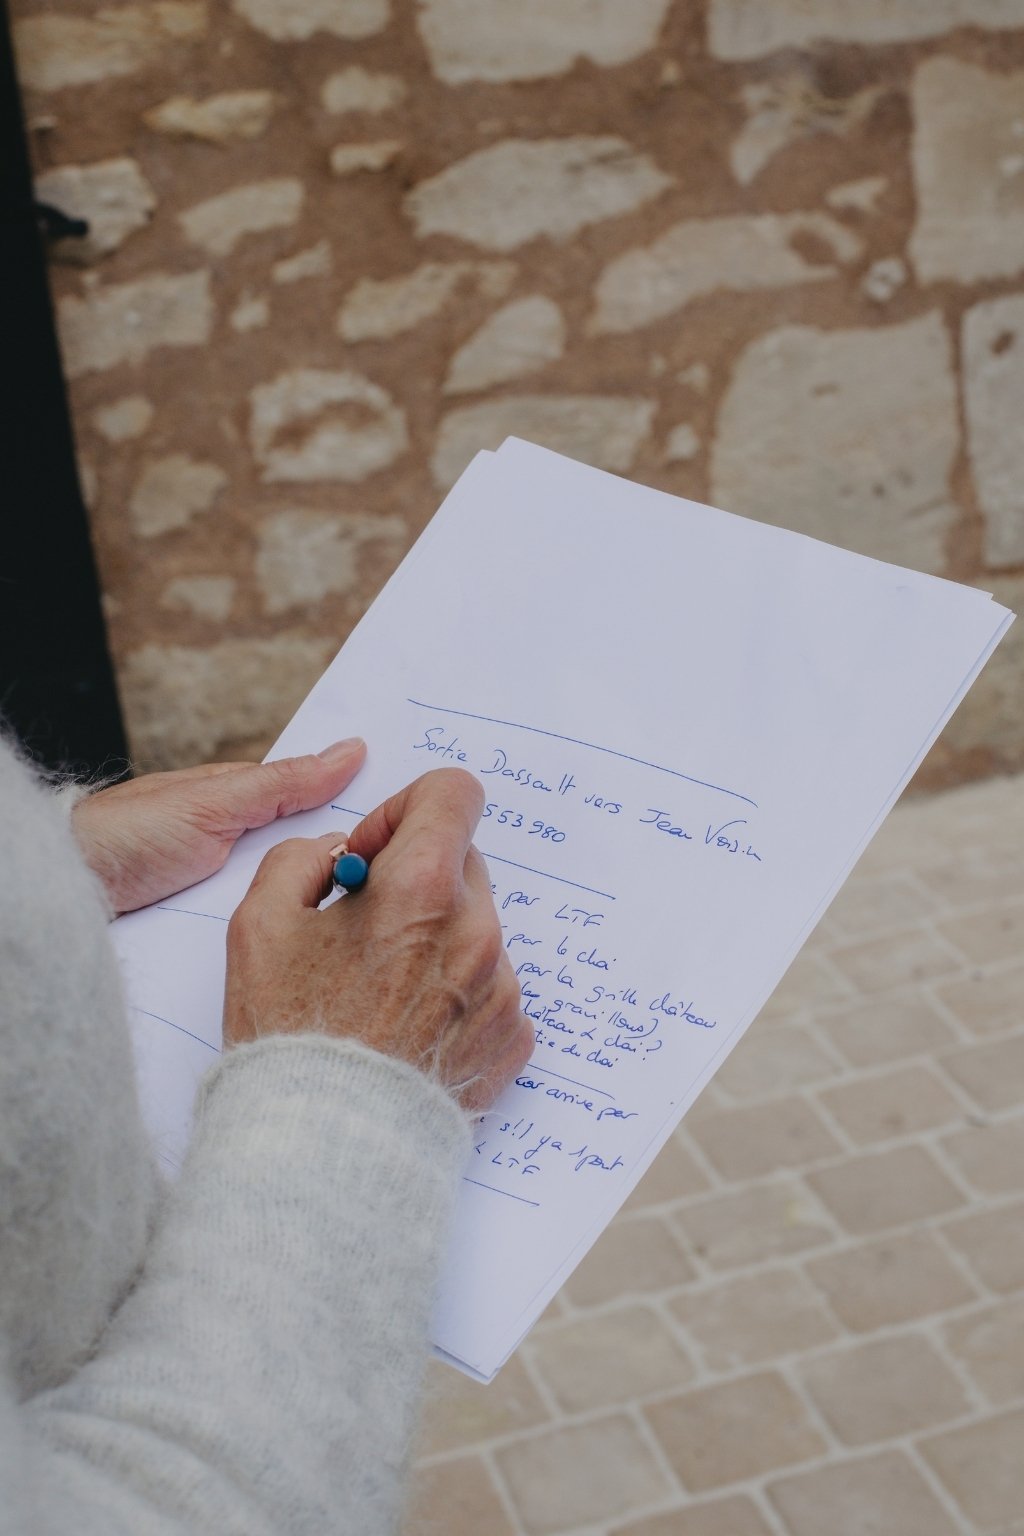 Sortie Dassault vers Jean Voisin
553 980
par LTF
par le chai
par la grille château
les gravillons)
château & chai?
tie du chai
car arrive par
s'il y a 1 pont
& LTF